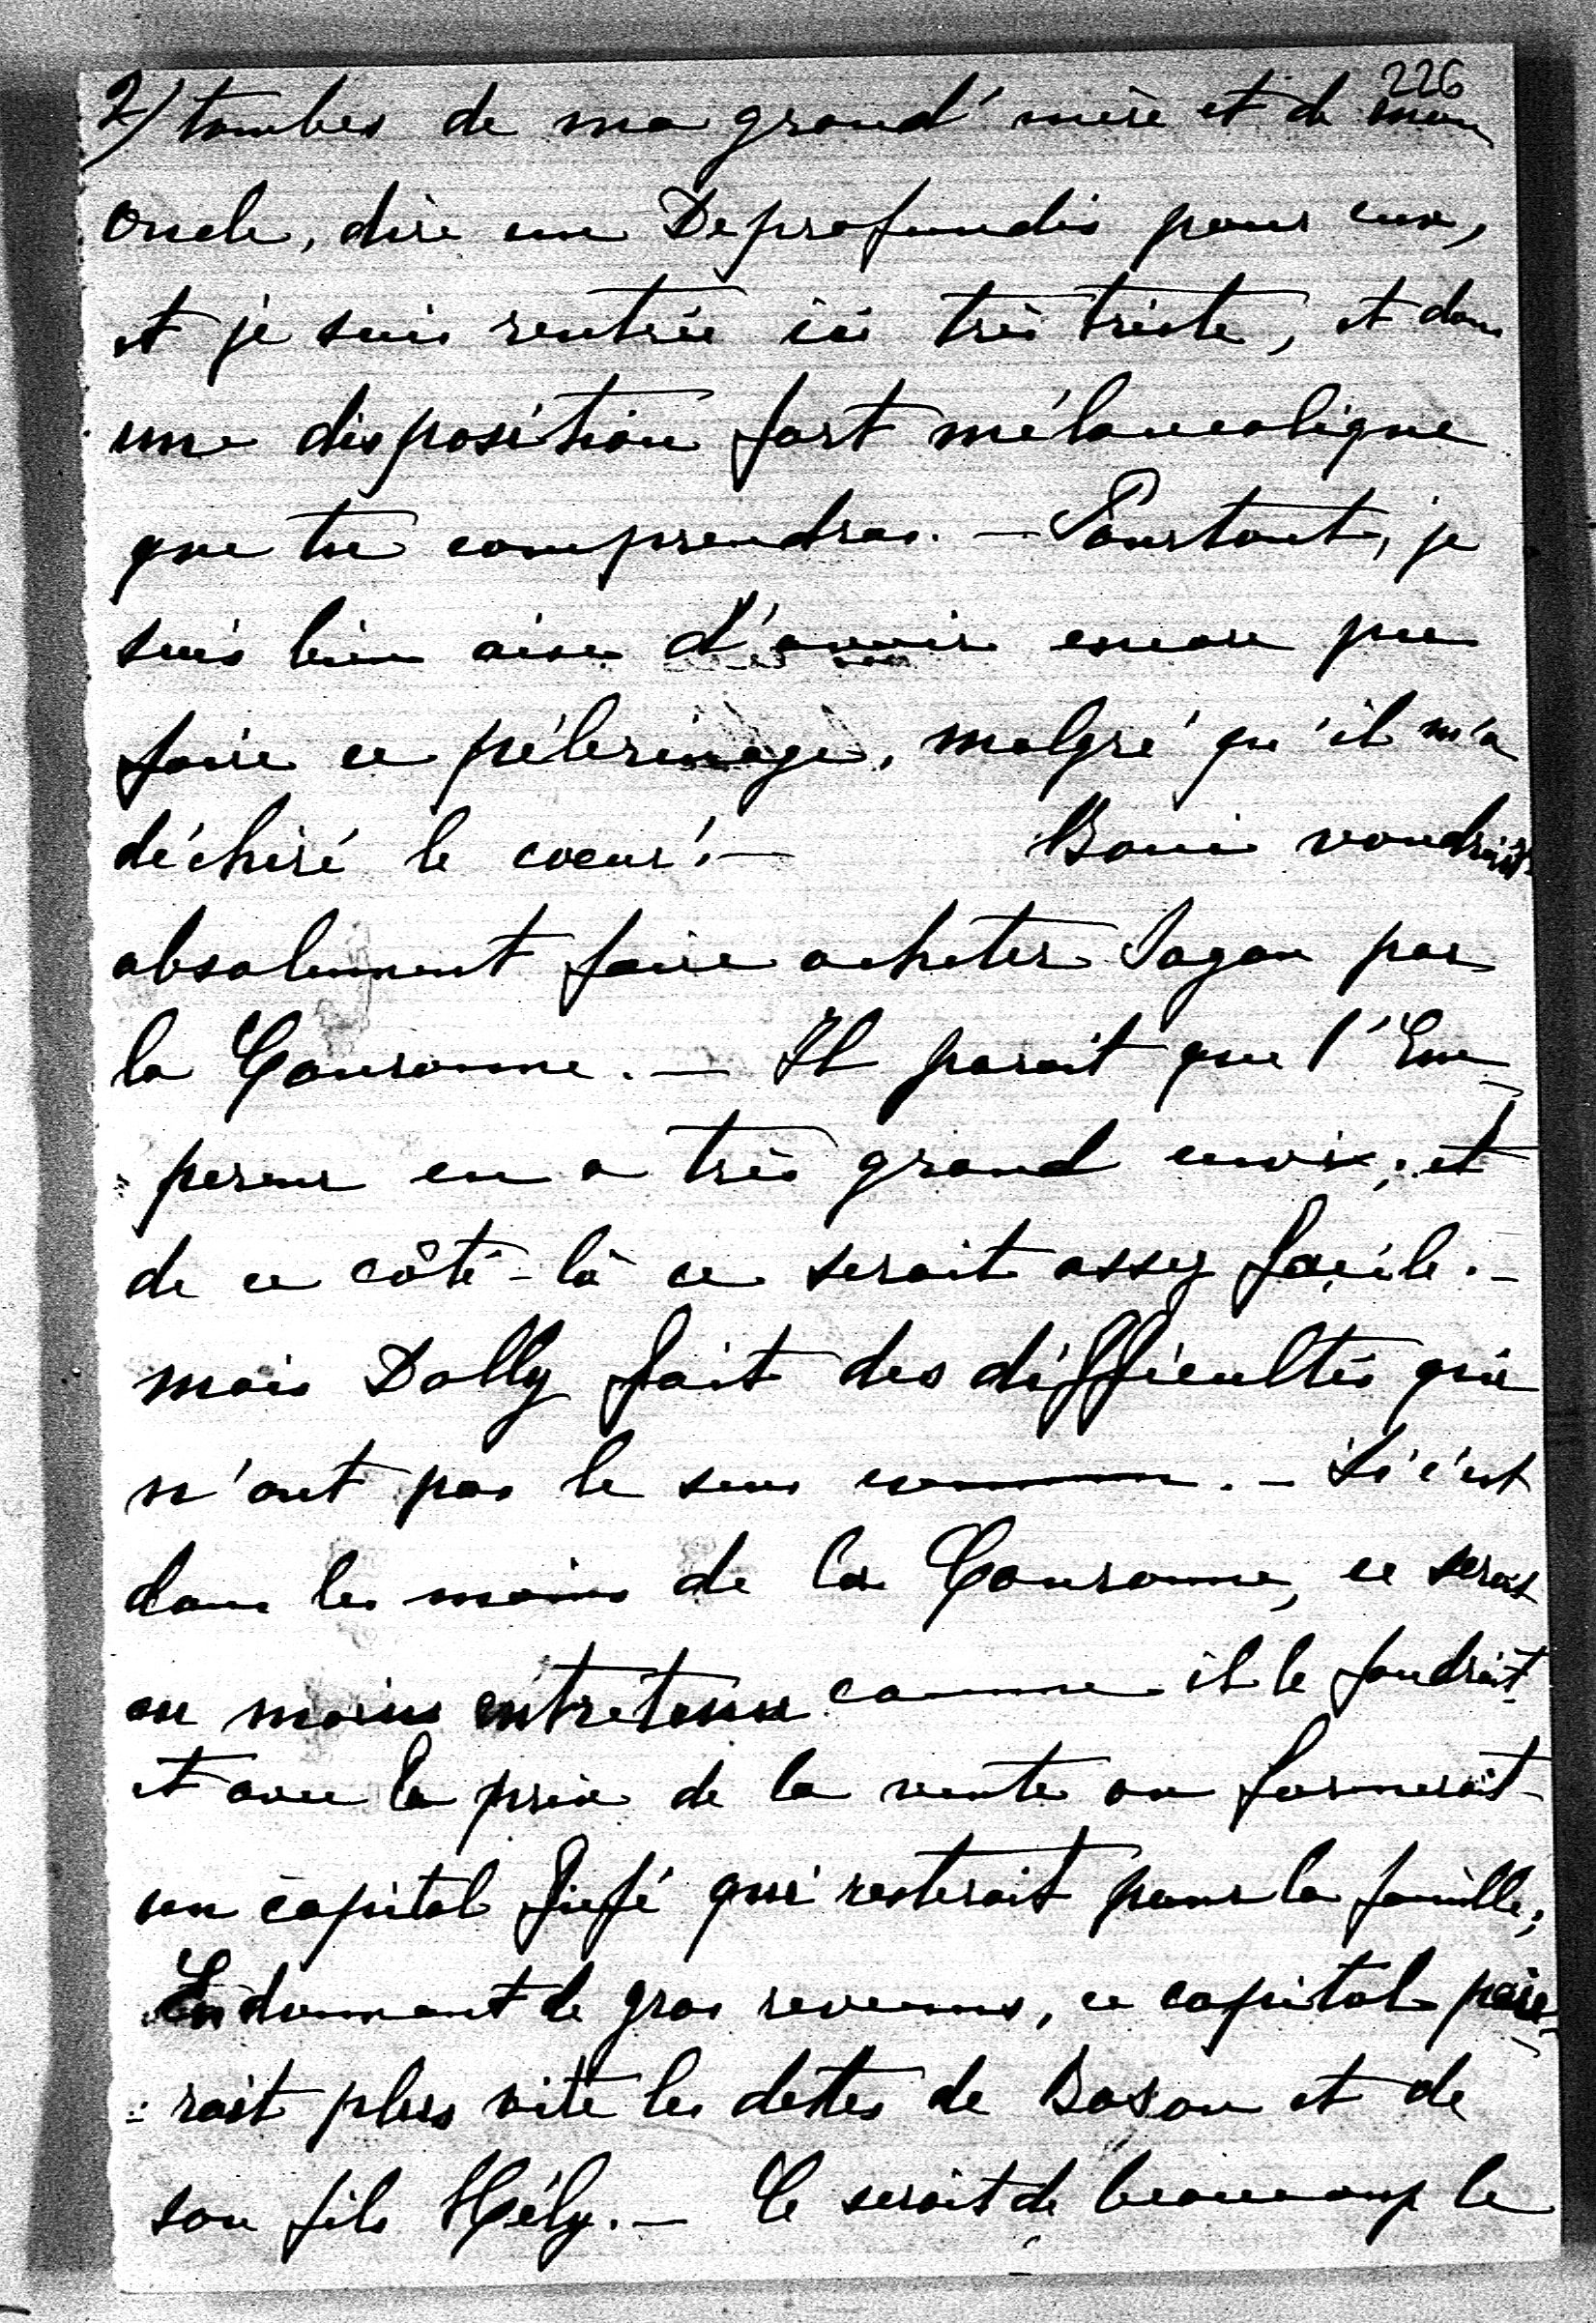 226
2) tombes de ma grand'mère et de mon
Oncle, dire un De profundis pour eux,
et je suis rentrée ici très triste, et dans
une disposition fort mélancolique
que tu comprendras. — Pourtant, je
suis bien aise d'avoir encore pu
faire ce pélerinage, malgré qu'il m'a
déchiré le coeur! — Boni voudrait
absolument faire acheter Sagan par
la Couronne. — Il parait que l'Em-
pereur en a très grand envie; et
de ce côté-là ce serait assez facile. —
mais Dolly fait des difficultés qui
n'ont pas le sens commun. — Si c'est
dans les mains de la Couronne, ce serait
au moins entretenu comme il le faudrait
et avec le prix de la vente on formerait
un capital fiefé qui resterait pour la famille;
En donnant de gros revenus, ce capital paie-
=rait plus vite les dettes de Boson et de
son fils Hély. — Ce serait de beaucoup le